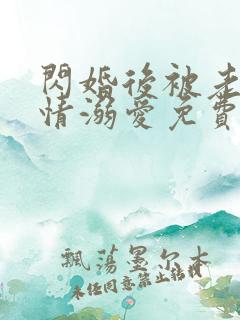 閃婚後被老
情溺愛免費
飄蕩墨尔本
未任同意禁止转载